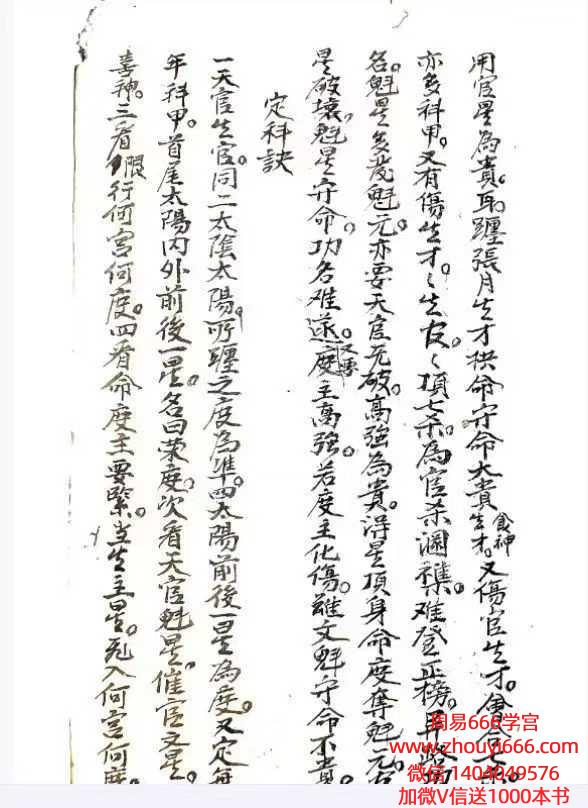 用官星為貴。再躔張月生才拱命守命大貴。食神生才。又傷官生才。會
亦多科甲。又有傷生才々生官々頂七杀。為官杀溷襍。难登正榜。異路
名。魁星多發魁元。亦要天官无破。高強為貴。得星頂身命度奪魁元
星破壞。魁星守命。功名难遂。又要度主高強。若度主化傷。雖文魁守命不貴
定科訣
一天官生官。同二太陰太陽。所躔之度為準。四太陽前後一星為度。又定
年科甲。首尾太陽内外前後一星。名曰荣度。次看天官魁星。催官文星。
喜神。三看限行何宮何度。四看命度主要緊。当生主星。飛入何宮何度
周易666学宫
www.zhouyi666.com
微信1404049576
加微V信送1000本书